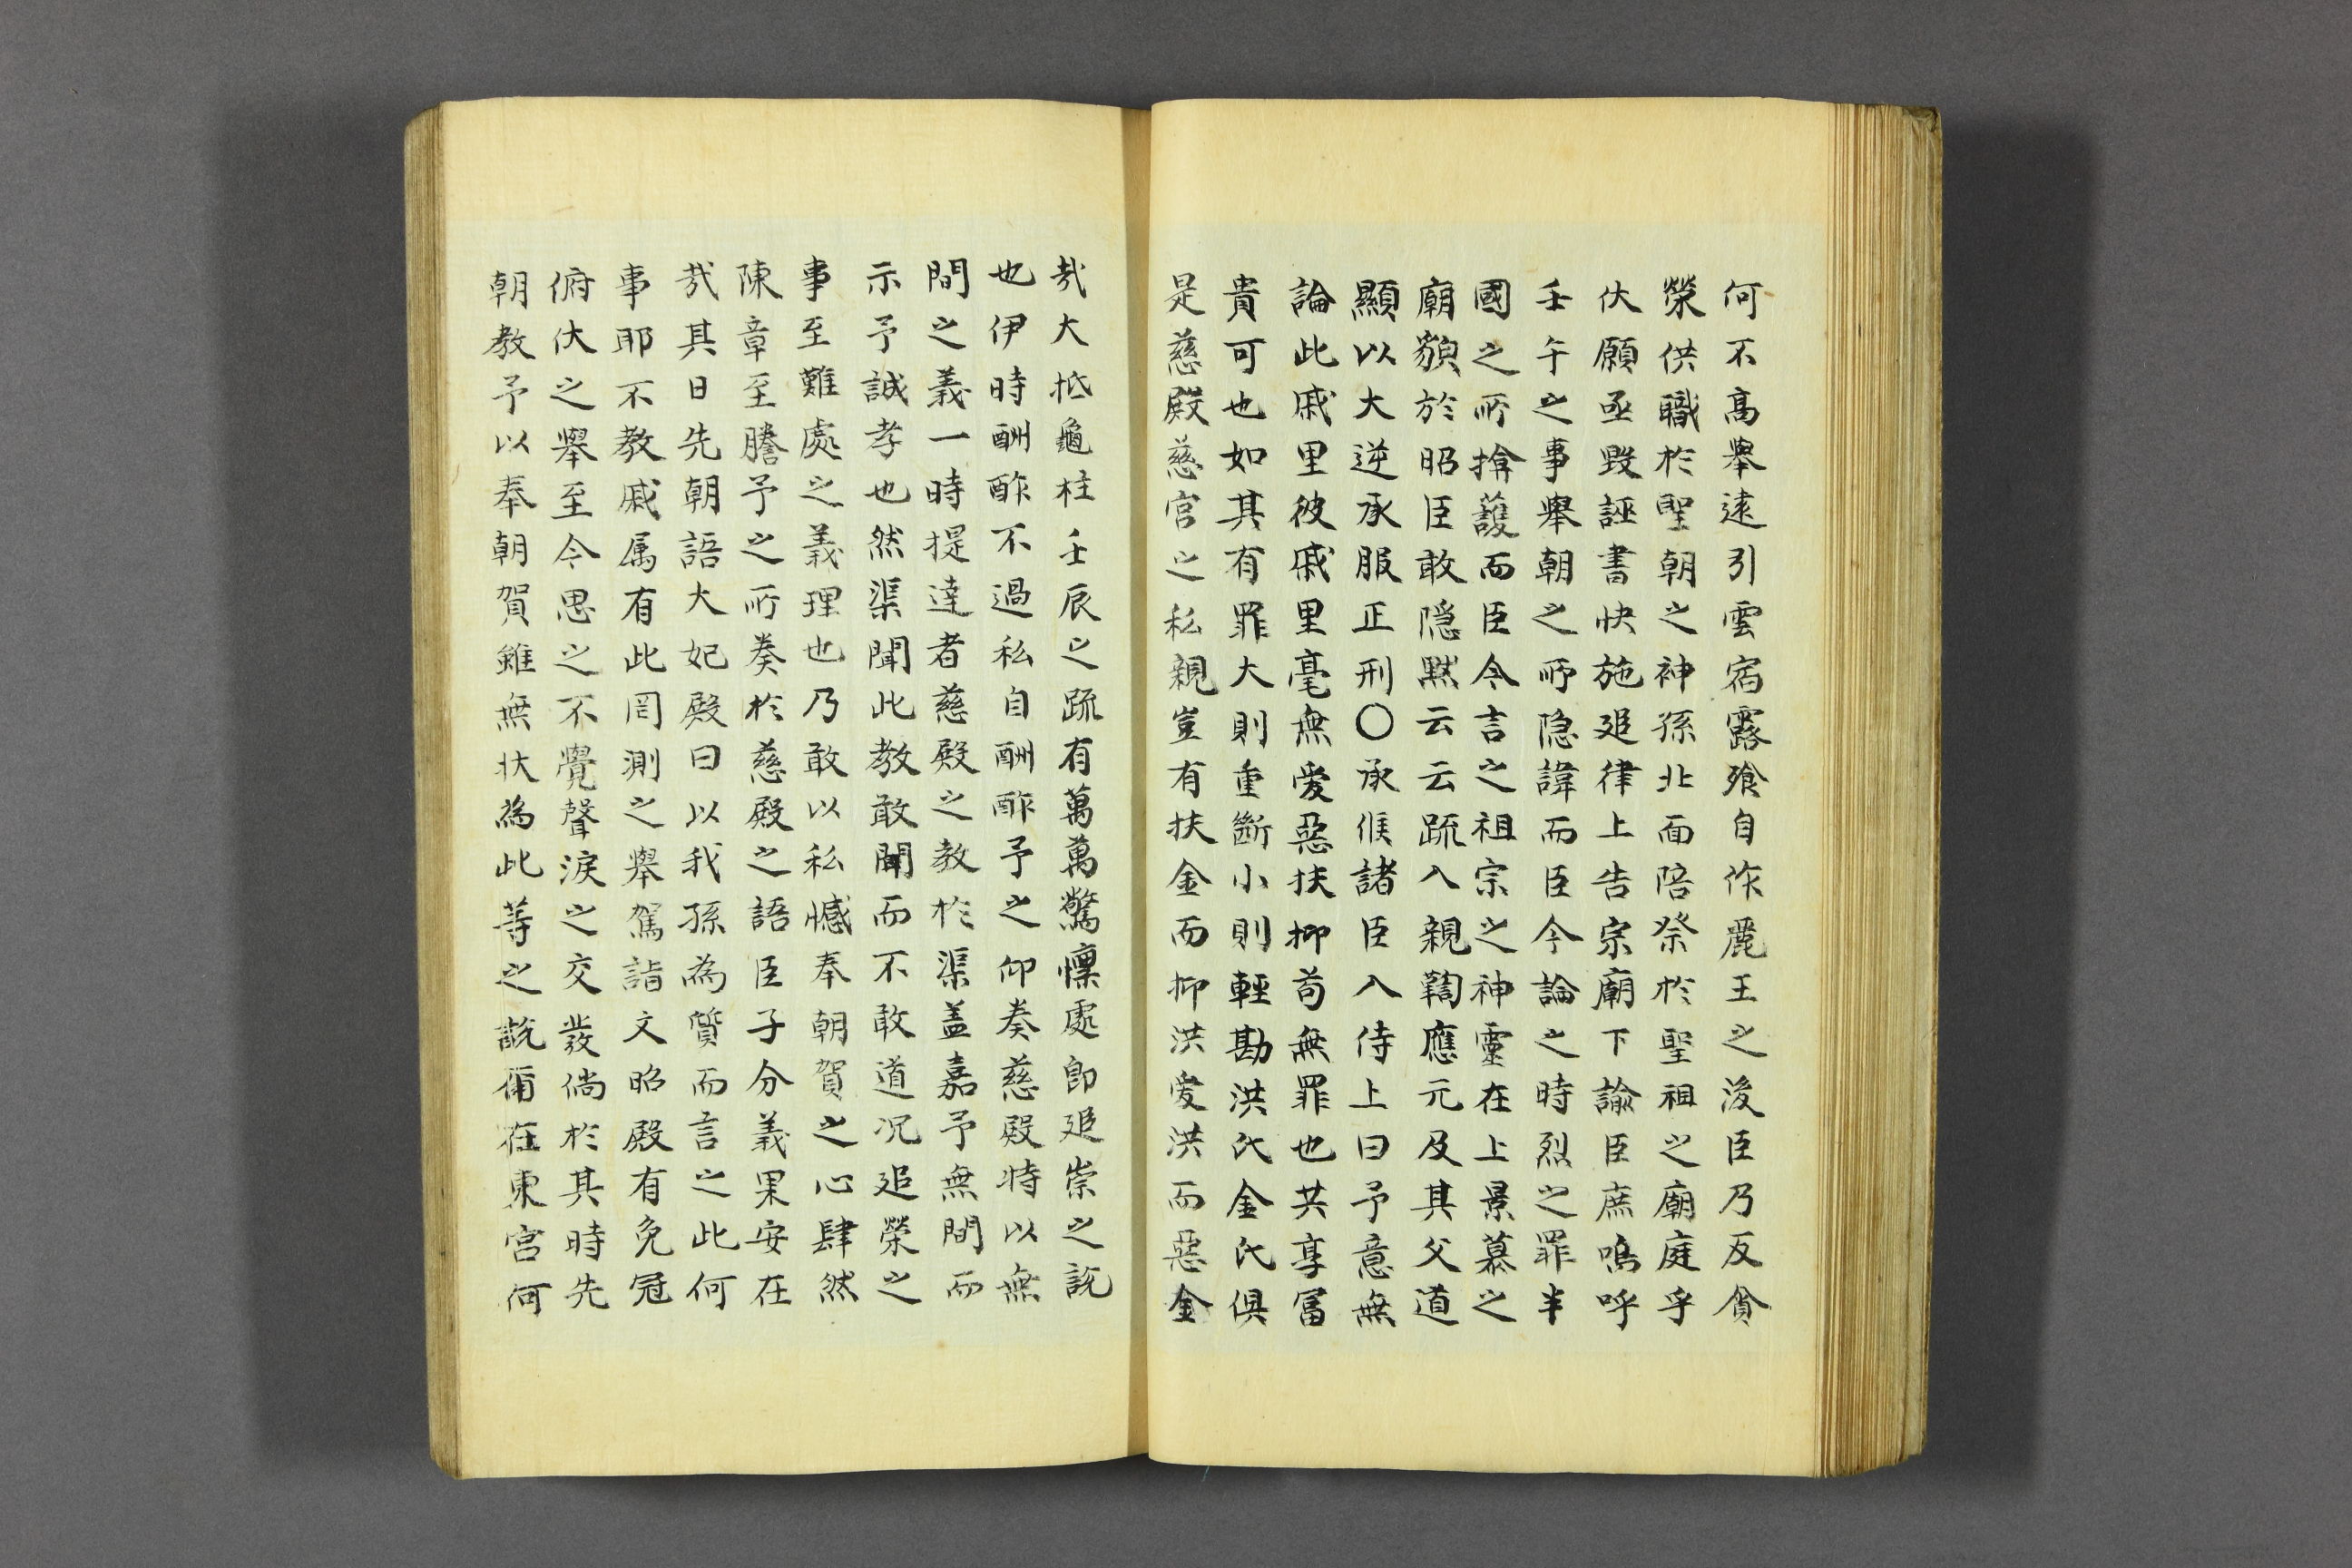 何不高舉遠引雲宿露飱自作麗王之後臣乃反貪
榮供職於聖朝之神孫北面陪祭於聖祖之廟庭乎
伏願亟毀誣書快施追律上告宗廟下諭臣庶嗚呼
壬午之事舉朝之所隐諱而臣今論之時烈之罪半
國之所揜護而臣今言之祖宗之神靈在上景慕之
廟貌於昭臣敢隠黙云云疏入親鞫應元及其父道
顯以大逆承服正刑〇承候諸臣入侍上曰予意無
論此戚里彼戚里毫無愛惡扶抑苟無罪也共享富
貴可也如其有罪大則重斷小則輕勘洪氏金氏俱
是慈殿慈宮之私親豈有扶金而抑洪愛洪而惡金
㦲大抵龜柱壬辰之疏有萬萬驚懍處卽追崇之說
也伊時酬酢不過私自酬酢予之仰奏慈殿時以無
間之義一時提達者慈殿之教於渠盖嘉予無間而
示予誠孝也然渠聞此教敢聞而不敢道况追榮之
事至難處之義理也乃敢以私憾奉朝賀之心肆然
陳章至謄予之所奏於慈殿之語臣子分義果安在
㦲其日先朝語大妃殿曰以我孫為質而言之此何
事耶不教戚属有此罔測之舉駕詣文昭殿有免冠
俯伏之舉至今思之不覺聲淚之交發倘於其時先
朝教予以奉朝賀雖無狀為此等之說爾在東宮何